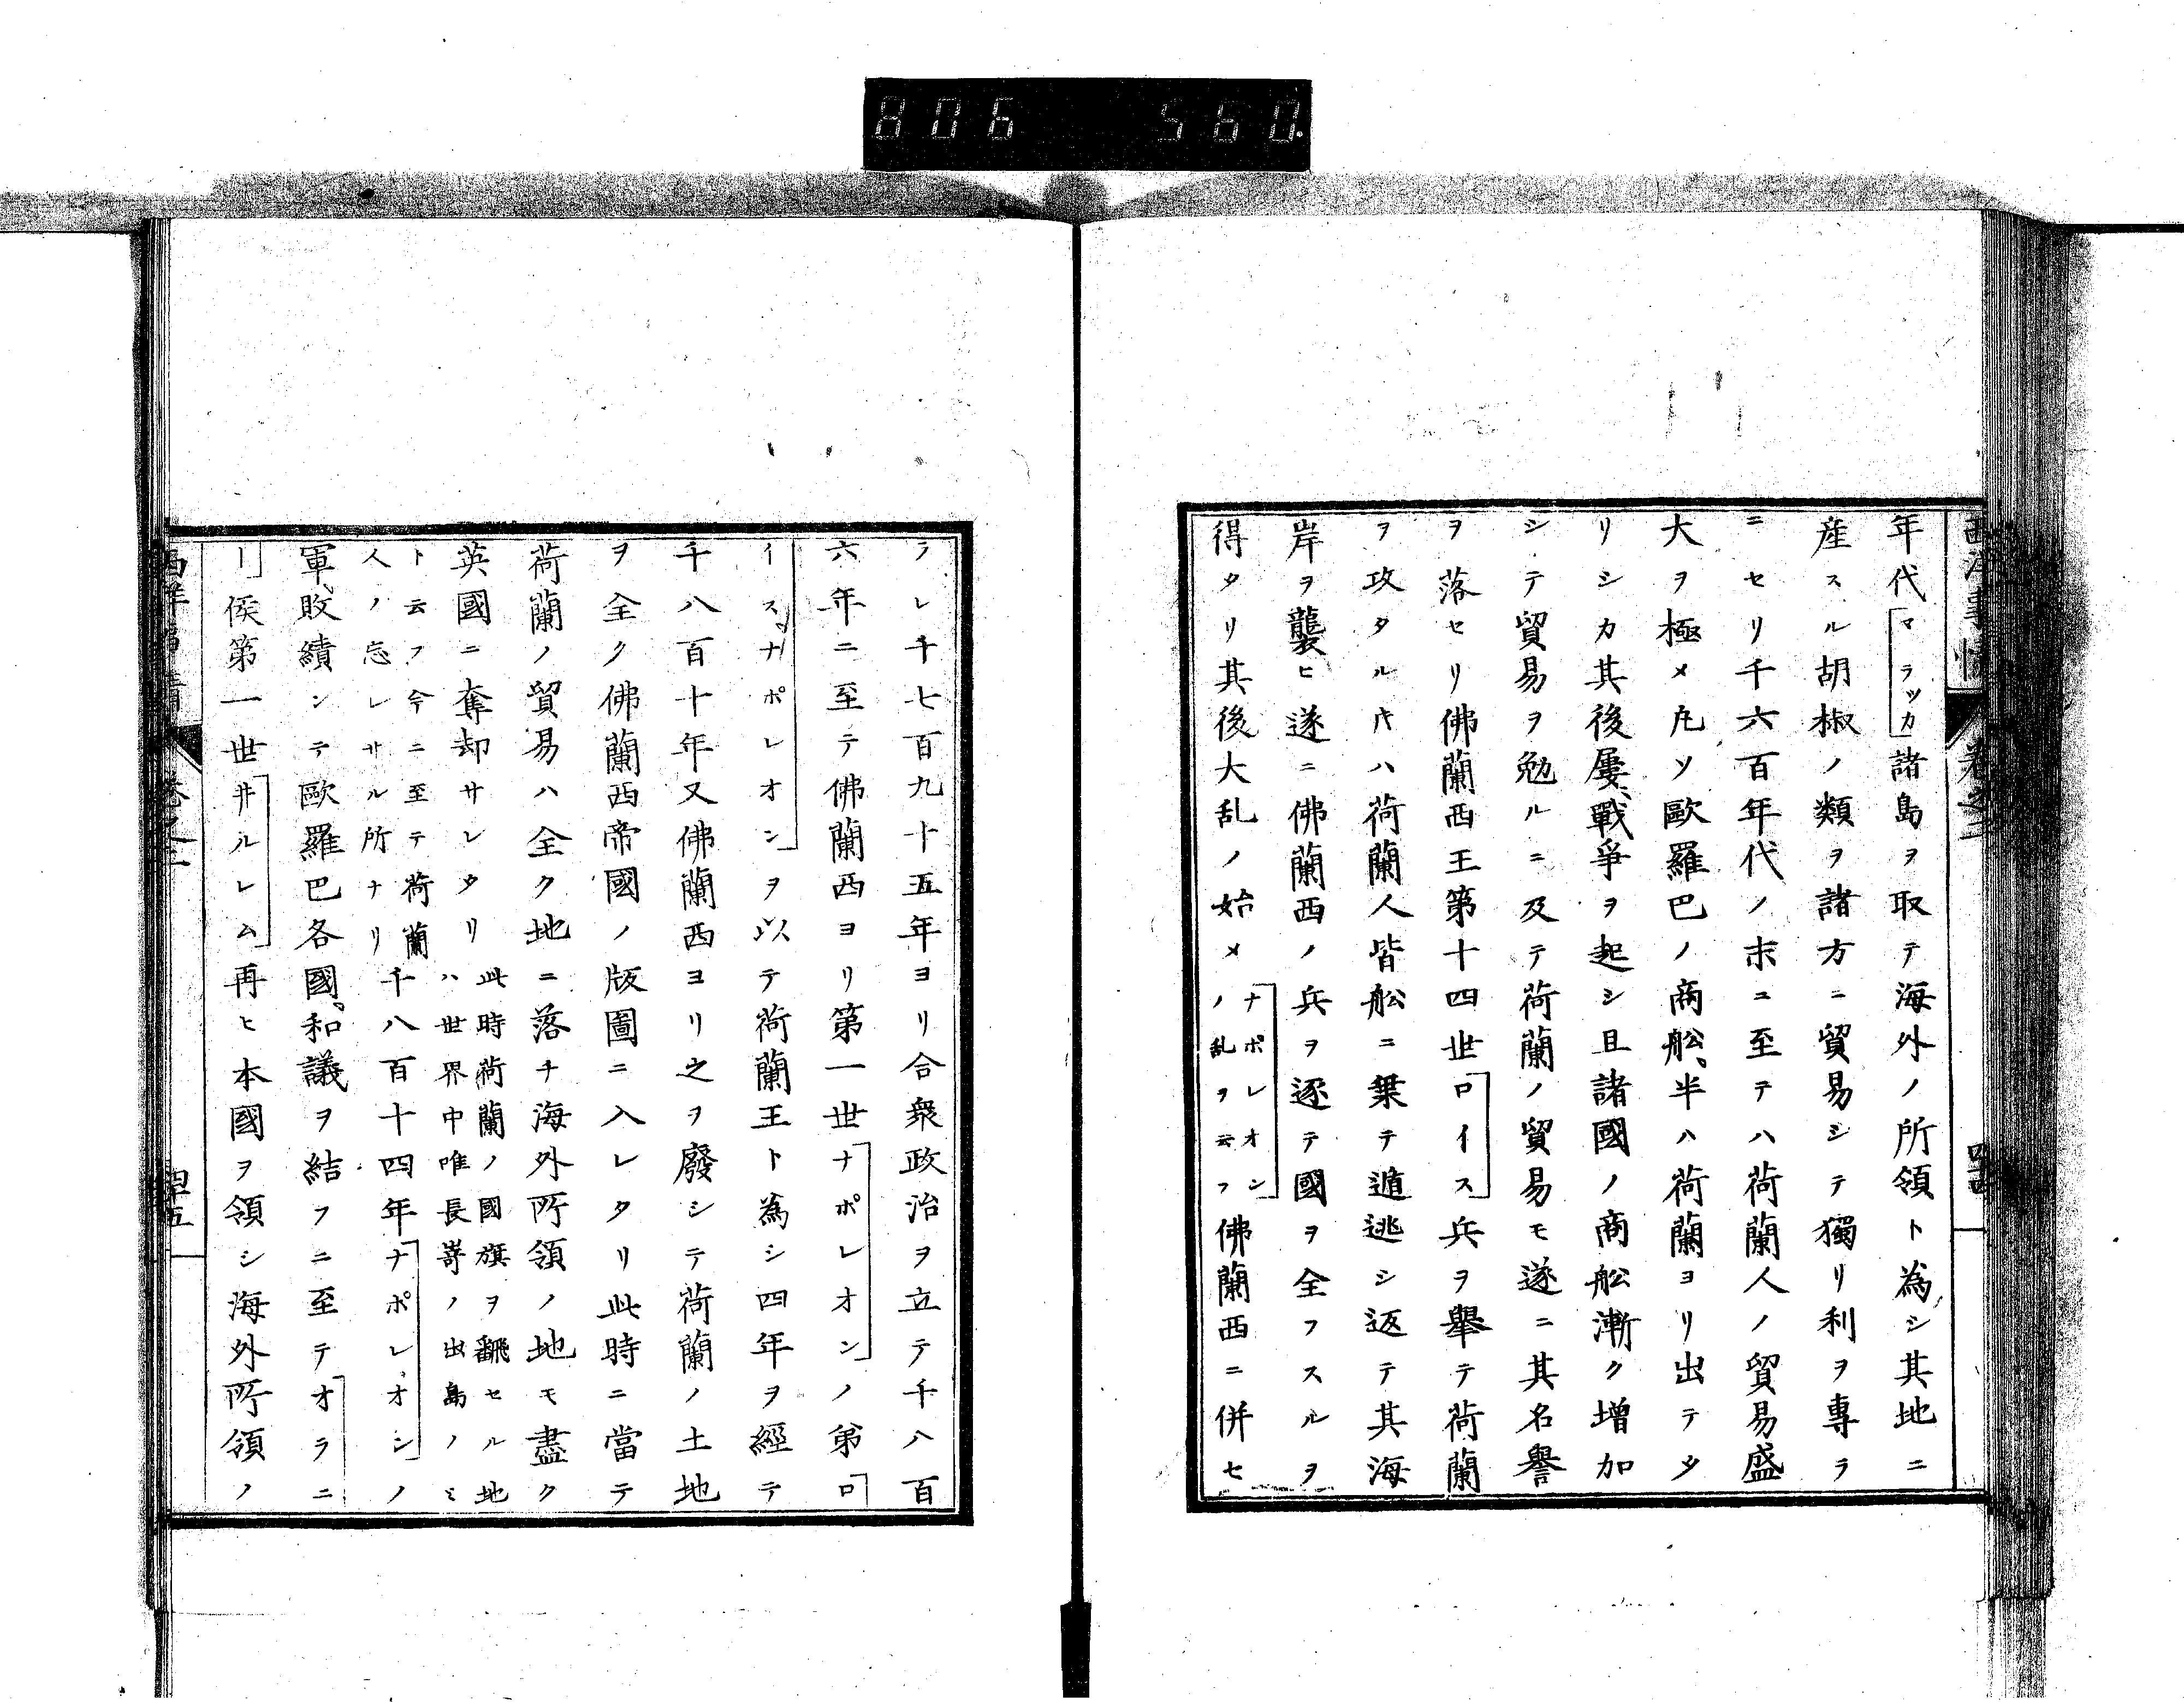 806 560.
年代マラッカ諸島ヲ取テ海外ノ所領ト為シ其地ニ
産スル胡椒ノ類ヲ諸方ニ貿易シテ獨リ利ヲ專ラ
ニセリ千六百年代ノ末ニ至テハ荷蘭人ノ貿易盛
大ヲ極メ凡ソ歐羅巴ノ商舩、半ハ荷蘭ヨリ出テタ
リシカ其後屢、戰爭ヲ起シ且諸國ノ商舩漸ク増加
シテ貿易ヲ勉ルニ及テ荷蘭ノ貿易モ遂ニ其名譽
ヲ落セリ佛蘭西王第十四世ロイス兵ヲ舉テ荷蘭
ヲ攻タル𪜈ハ荷蘭人皆舩ニ乗テ遁逃シ返テ其海
岸ヲ襲ヒ遂ニ佛蘭西ノ兵ヲ逐テ國ヲ全フスルヲ
得タリ其後大乱ノ始メ
ナポレオン
ノ乱ヲ云フ
佛蘭西ニ併セ
ラレ千七百九十五年ヨリ合衆政治ヲ立テ千八百
六年ニ至テ佛蘭西ヨリ第一世ナポレオンノ弟ロ
イスナポレオンヲ以テ荷蘭王ト為シ四年ヲ經テ
千八百十年又佛蘭西ヨリ之ヲ廢シテ荷蘭ノ土地
ヲ全ク佛蘭西帝國ノ版圖ニ入レタリ此時ニ當テ
荷蘭ノ貿易ハ全ク地ニ落チ海外所領ノ地モ盡ク
英國ニ奪却サレタリ
此時荷蘭ノ國旗ヲ飜セル地
ハ世界中唯長嵜ノ出島ノミ
ト云フ今ニ至テ荷蘭
人ノ忘レサル所ナリ
千八百十四年ナポレオンノ
軍、敗績シテ歐羅巴各國。和議ヲ結フニ至テオラニ
ー侯第一世井ルレム再ヒ本國ヲ領シ海外所領ノ